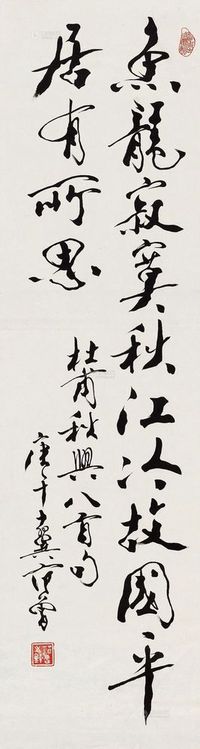 鱼龍寂寞秋江冷故國平
居有所思
杜甫秋興八首句
庚午十翼范曾